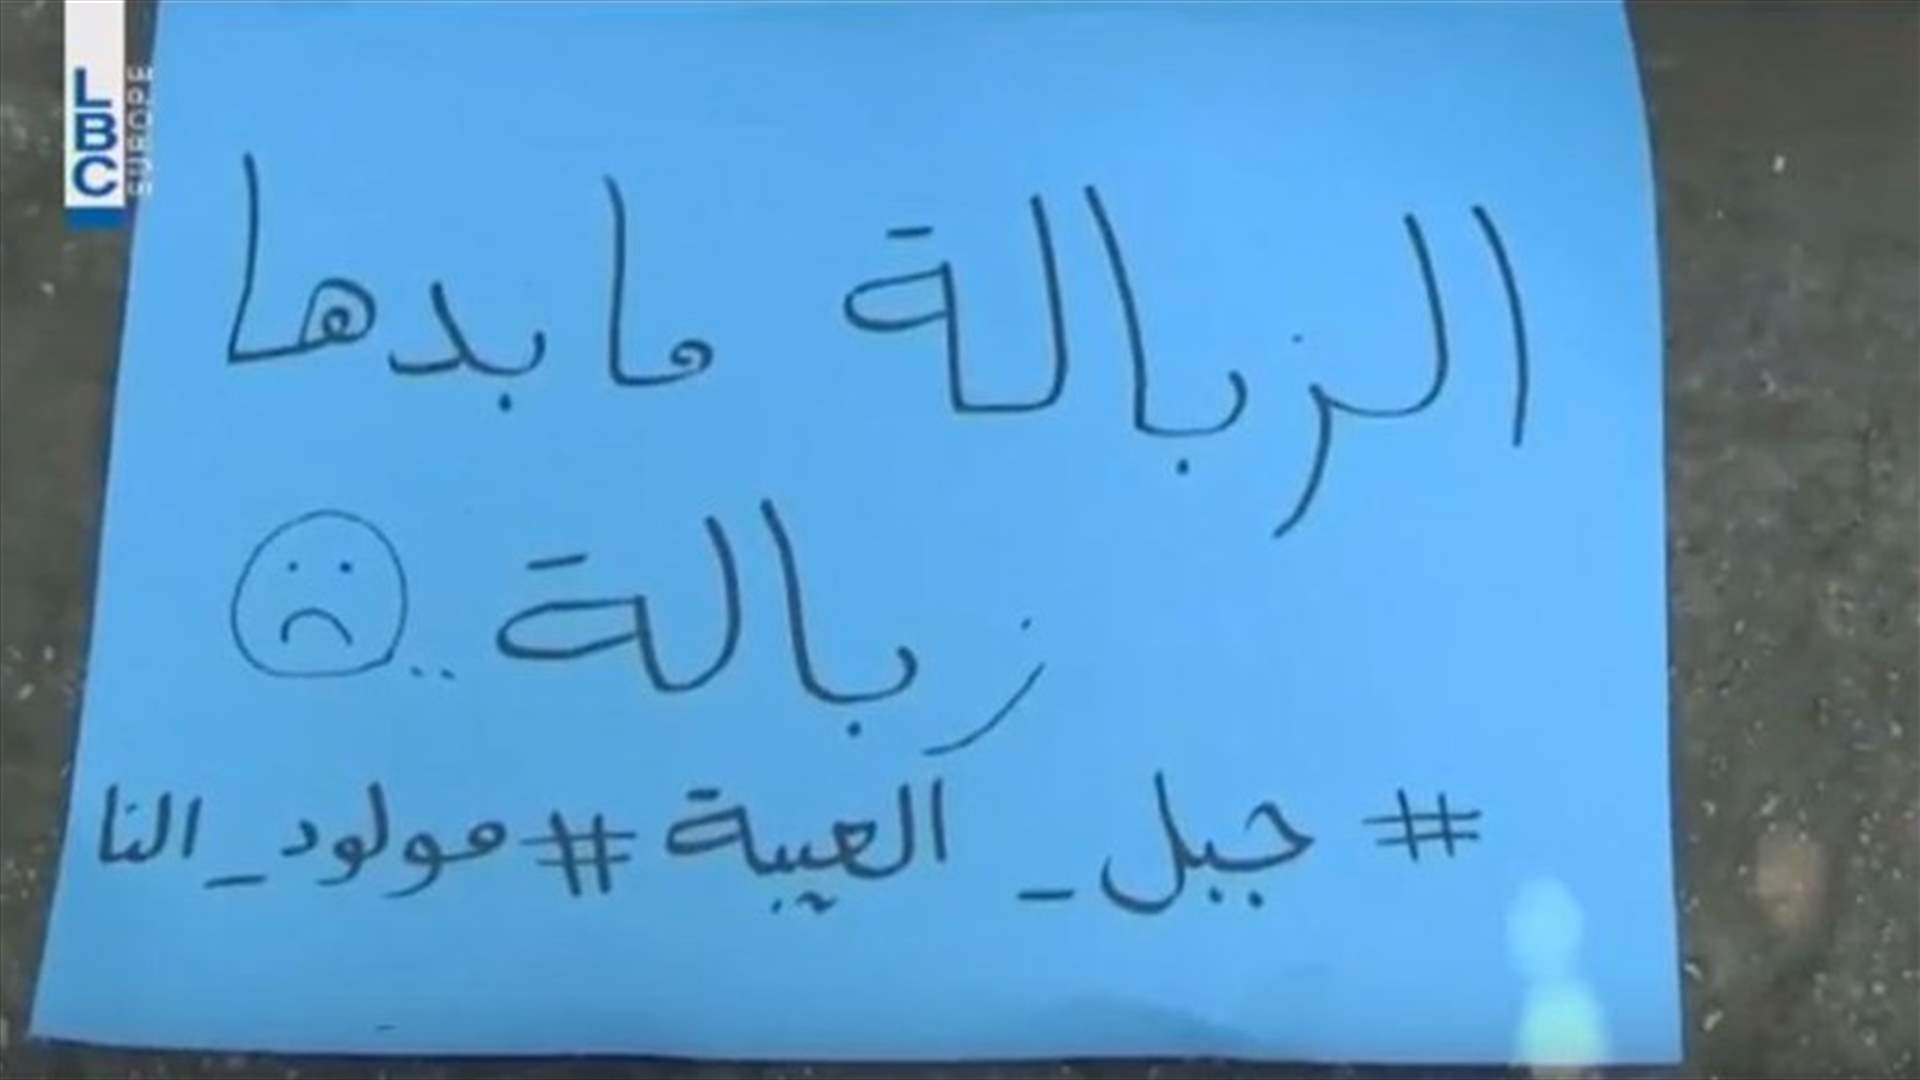 LBC
EUROPE
الزبالة ما بدها
زبالة ..
#جبل_العيبة #مولود_النا